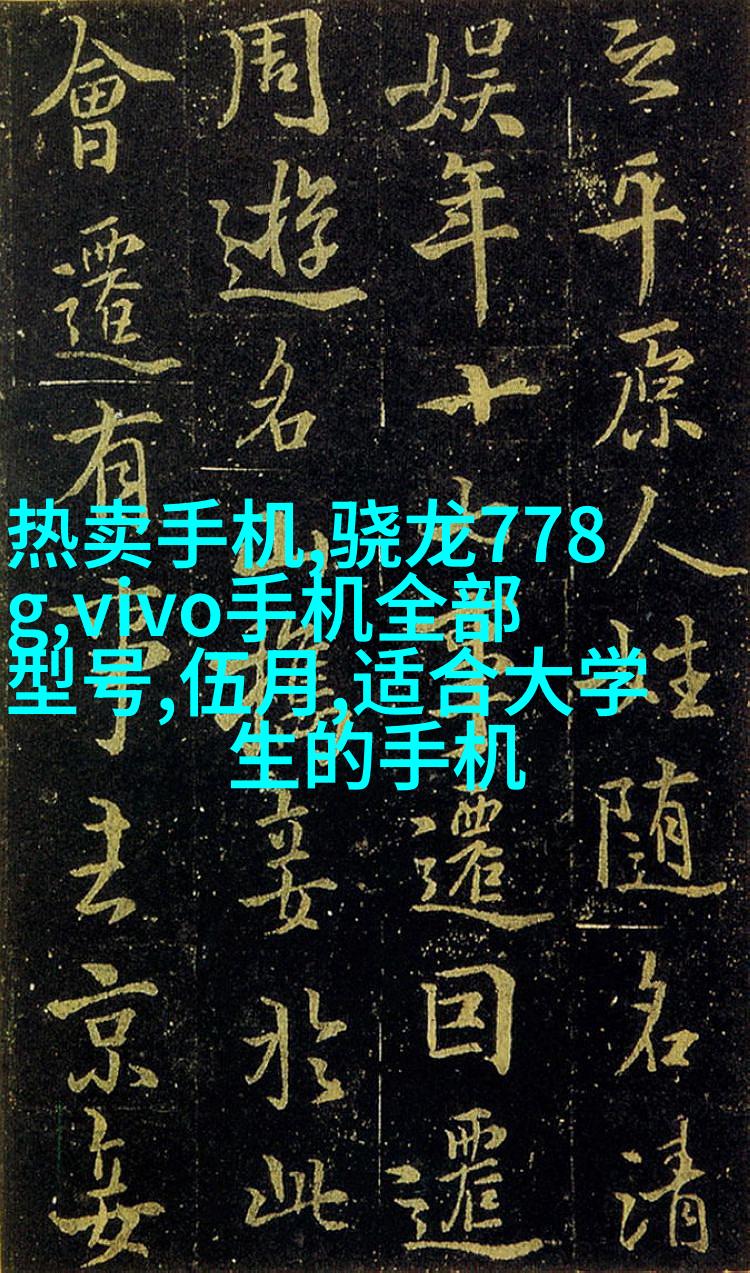 热卖手机,骁龙778
g,vivo手机全部
型号,伍月,适合大学
生的手机
之平原人姓随名清
娱年十七事遷囙遷
周遊名山攜妾於此
會遷有事去京妾